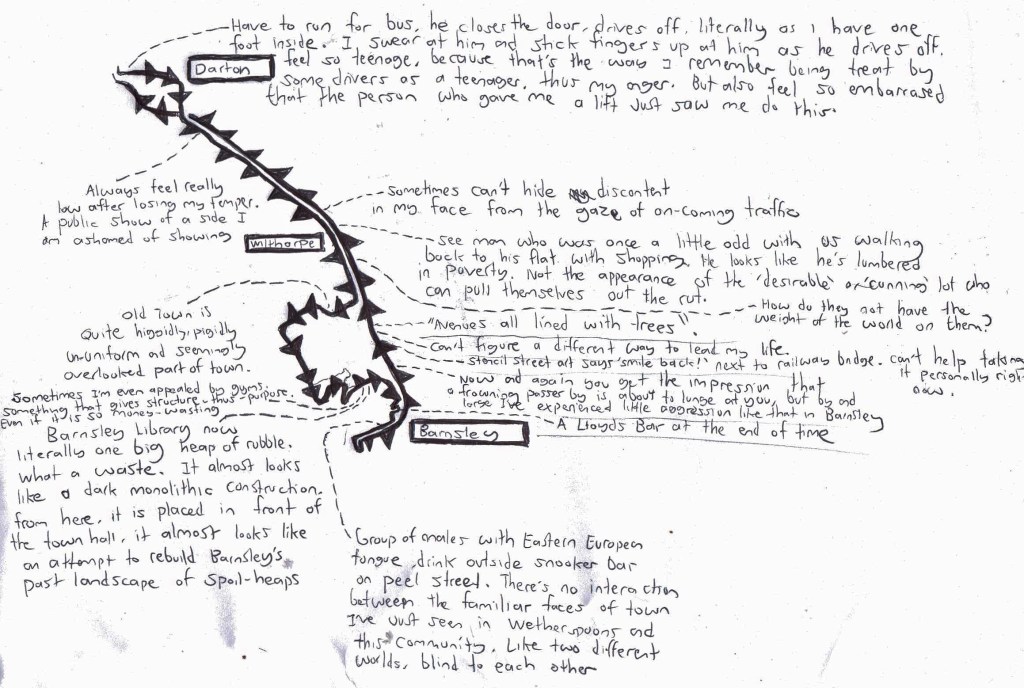 Have to run for bus, he closes the door, drives off, literally as I have one
foot inside. I swear at him and stick fingers up at him as he drives off.
feel so teenage, because that's the way I remember being treat by
some drivers as a teenager, thus my anger. But also feel so embarrased
that the person who gave me a lift just saw me do this.
Darton
Always feel really
low after losing my temper.
A public show of a side I
am ashamed of showing
sometimes can't hide discontent
in my face from the gaze of on-coming traffic
Wilthorpe
see man who was once a little odd with us walking
back to his flat with shopping. He looks like he's lumbered
in poverty. Not the appearance of the 'desirable' or 'cunning' lot who
can pull themselves out the rut.
How do they not have the
weight of the world on them?
Old Town is
Quite higgidly, pigidly
un-uniform and seemingly
overlooked part of town.
"Avenues all lined with trees".
Can't figure a different way to lead my life.
Stencil street art says 'smile back!' next to railway bridge. can't help taking
it personally right
now.
Now and again you get the impression that
a frowning passer by is about to lunge at you, but by and
large I've experienced little aggression like that in Barnsley
A Lloyds Bar at the end of time
Barnsley
Sometimes I'm even appealed by gyms,
something that gives structure, thus purpose.
Even if it is so money-wasting
Barnsley Library now
literally one big heap of rubble.
what a waste. It almost looks
like a dark monolithic construction.
from here, it is placed in front of
the town hall, it almost looks like
an attempt to rebuild Barnsley's
past landscape of spoil-heaps
Group of males with Eastern European
tongue drink outside snooker bar
on peel street. There's no interaction
between the familiar faces of town
I've just seen in Wetherspoons and
this community. Like two different
worlds, blind to each other